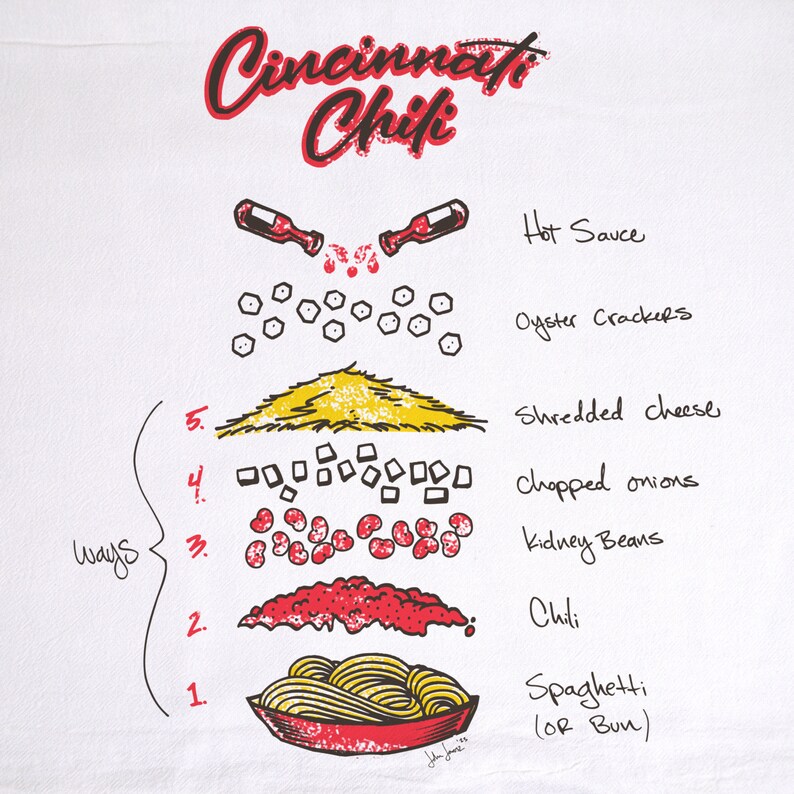 Cincinnati
Chili
Hot Sauce
Oyster Crackers
5. Shredded Cheese
4. Chopped onions
Ways
3. Kidney Beans
2. Chili
1. Spaghetti
(OR Bun)